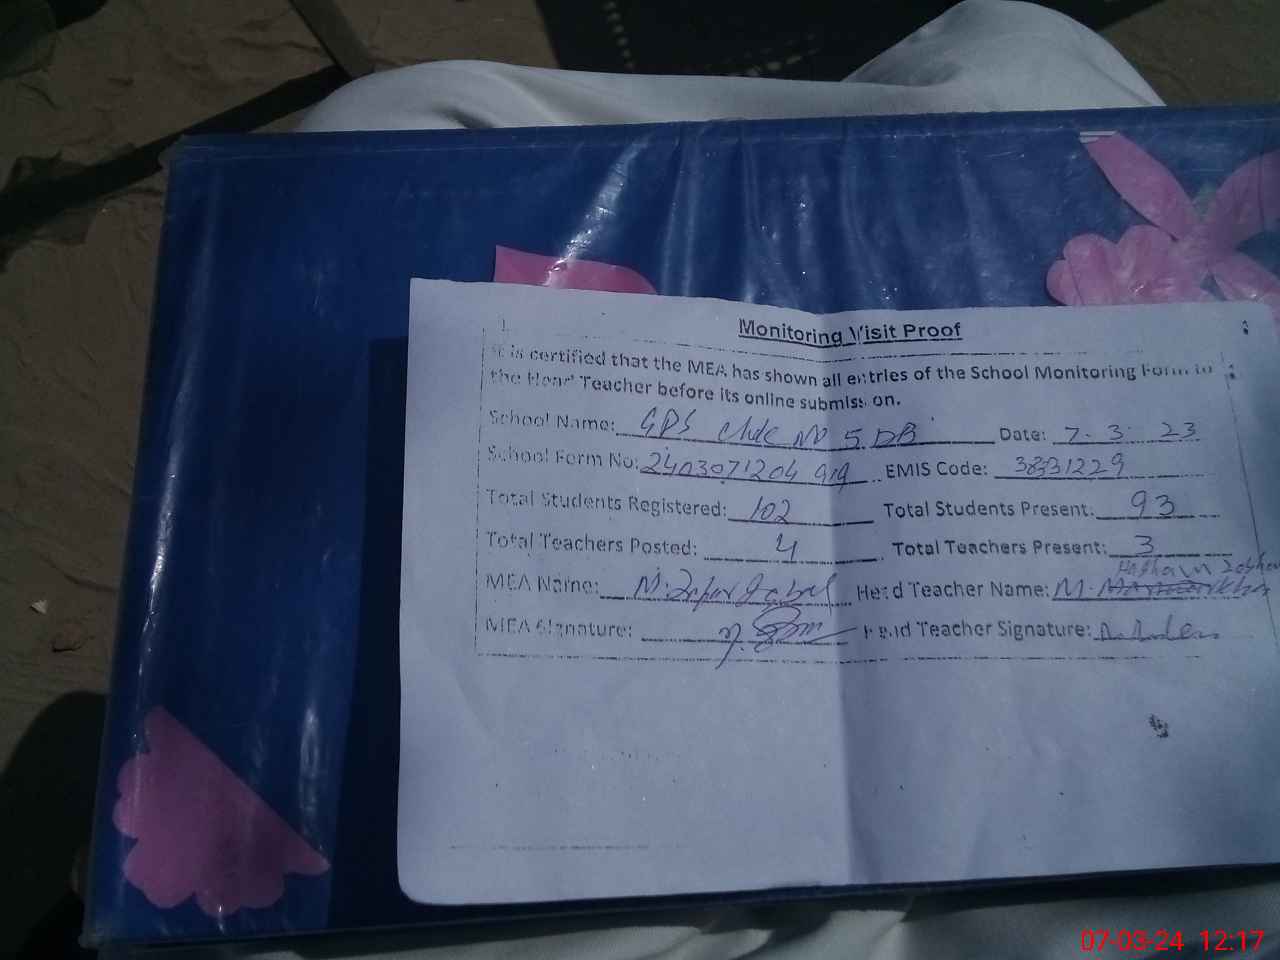 Monitoring Visit Proof
It is certified that the MEA has shown all entries of the School Monitoring Form to
the Head Teacher before its online submission.
School Name: GPS Chak No 5 DB Date: 7. 3. 23
School Form No: 2403071204 919 EMIS Code: 38331229
Total Students Registered: 102 Total Students Present: 93
Total Teachers Posted: 4 Total Teachers Present: 3
MEA Name: M. Zafar Iqbal Head Teacher Name: M.
MEA Signature: Head Teacher Signature:
07-03-24 12:17